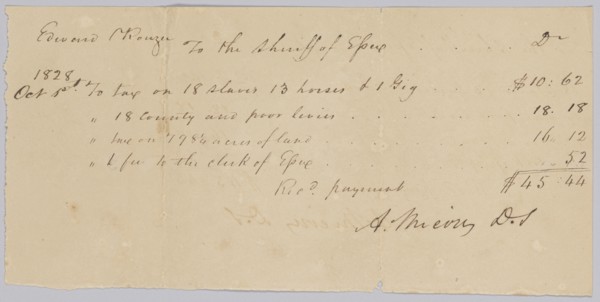 Edward Rouzee To the Sheriff of Essex Dr
1828
Oct 1st To tax on 18 slaves 13 horses & 1 Gig $10:62
" 18 county and poor levies 18.18
" tax on 798¼ acres of land 16.12
" to fee to the clerk of Essex 52
Recd. payment $45:44
A. Micou, D.S